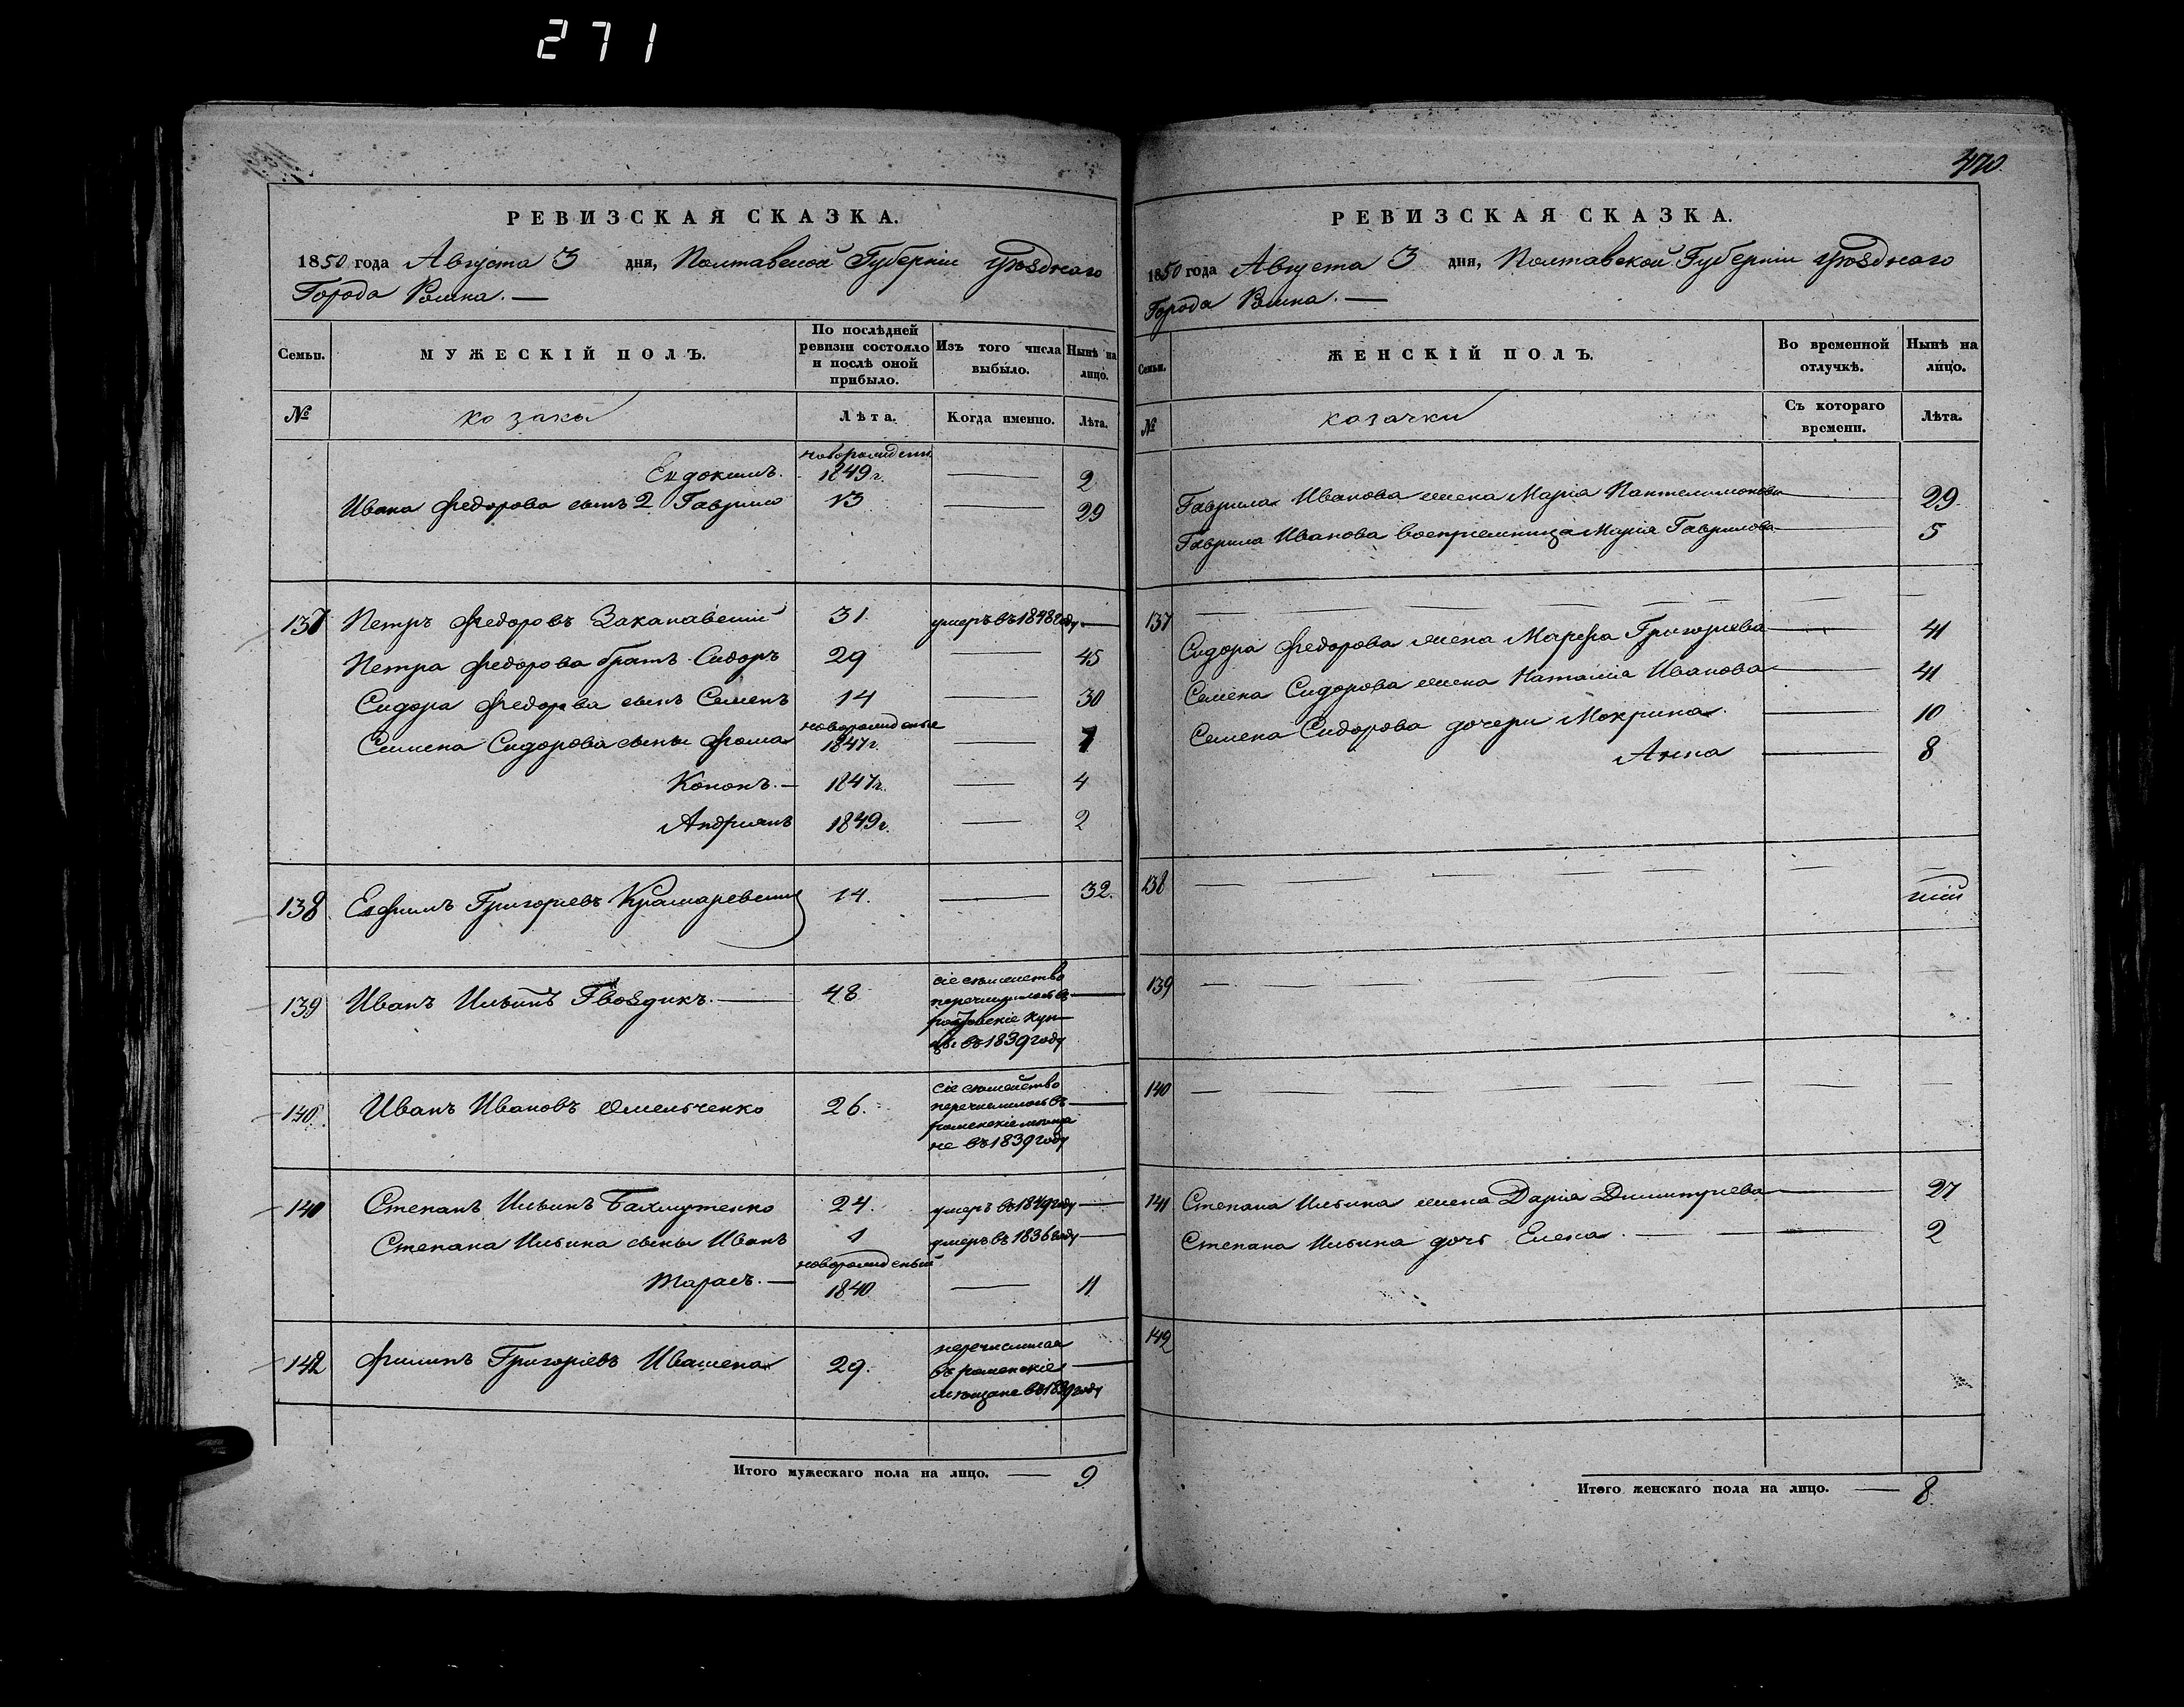 271
РЕВИЗСКАЯ СКАЗКА.
1850 года Августа 3 дня, Полтавской Губерніи Уѣзднаго
Города Ромна. —
Семьи.
МУЖЕСКІЙ ПОЛЪ.
По послѣдней ревизіи состояло и послѣ оной прибыло.
Изъ того числа выбыло.
Нынѣ на лицо.
№
козаки
Лѣта.
Когда именно.
Лѣта.
новорожден.
Евдокимъ. 1849 г. — 2
Ивана Федорова сынъ 2 Гаврило 13 — 29
137 Петръ Федоровъ 31. умеръ въ 1848 году —
Петра Федорова братъ Сидоръ 29 — 45
Сидора Федорова сынъ Семенъ 14 — 30
новорожденые
Семена Сидорова сыны Фома 1847 г. — 7
Кононъ. — 1847 г. — 4
Андріянъ 1849 г. — 2
138. Евфимъ Григорьевъ Крамаревскій 14. — 32.
139 Иванъ Ильинъ Гвоздикъ. — 48
сіе съмейство
перечислилось въ —
купцы въ 1839 году
140. Иванъ Ивановъ Омельченко 26.
сіе съмейство
перечислилось въ —
роменскіе мѣщане въ 1839 году
141 Степанъ Ильинъ Бахмутенко 24. умеръ въ 1849 году —
Степана Ильина сыны Иванъ 1 умеръ въ 1836 году —
новорожденый
Тарасъ. — 1840 — 11
142 Филипъ Григоріевъ Ивашена 29.
перечислился
въ роменскіе —
мѣщане въ 1839 году
Итого мужескаго пола на лицо. — 9
470
РЕВИЗСКАЯ СКАЗКА.
1850 года Августа 3 дня, Полтавской Губерніи Уѣзднаго
Города Ромна. —
Семьи.
ЖЕНСКІЙ ПОЛЪ.
Во временной отлучкѣ.
Нынѣ на лицо.
№
козачки
Съ котораго времени.
Лѣта.
Гаврила Иванова жена Марія Пантелимонова — 29
Гаврила Иванова воспріемница Марія Гаврилова — 5
137
Сидора Федорова жена Марфа Григорьева — 41
Семена Сидорова жена Наталія Иванова — 41
Семена Сидорова дочери Мокрина. — 10
Анна — 8
138
139
140
141 Степана Ильина жена Дарія Димитріева — 27
Степана Ильина дочь Елена. — 2
142
Итого женскаго пола на лицо. — 8.